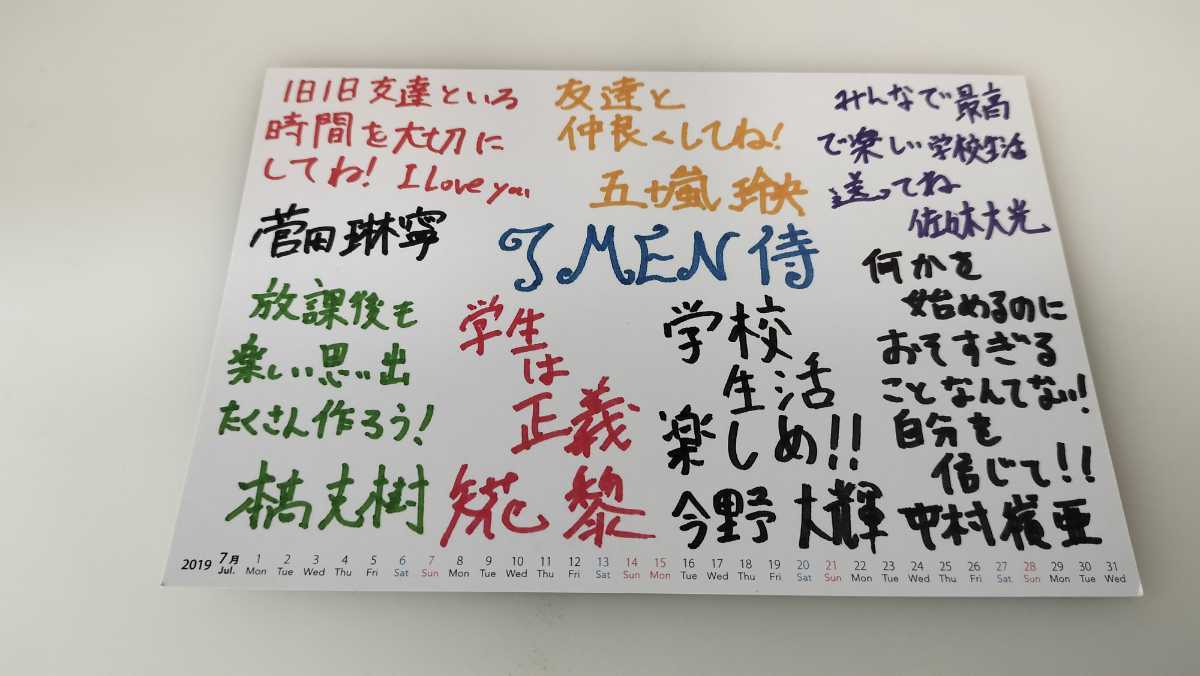 1日1日友達といろ
時間を大切に
してね! I Love you
菅田琳寧
友達と
仲良くしてね!
五十嵐玲央
みんなで最高
で楽しい学校生活
送ってね
佐々木大光
7 MEN 侍
放課後も
楽しい思い出
たくさん作ろう!
本髙克樹
学生
は
正義
矢花黎
学校
生活
楽しめ!!
今野大輝
何かを
始めるのに
おそすぎる
ことなんてない!
自分を
信じて!!
中村嶺亜
2019 7月 Jul. 1 2 3 4 5 6 7 8 9 10 11 12 13 14 15 16 17 18 19 20 21 22 23 24 25 26 27 28 29 30 31
Mon Tue Wed Thu Fri Sat Sun Mon Tue Wed Thu Fri Sat Sun Mon Tue Wed Thu Fri Sat Sun Mon Tue Wed Thu Fri Sat Sun Mon Tue Wed